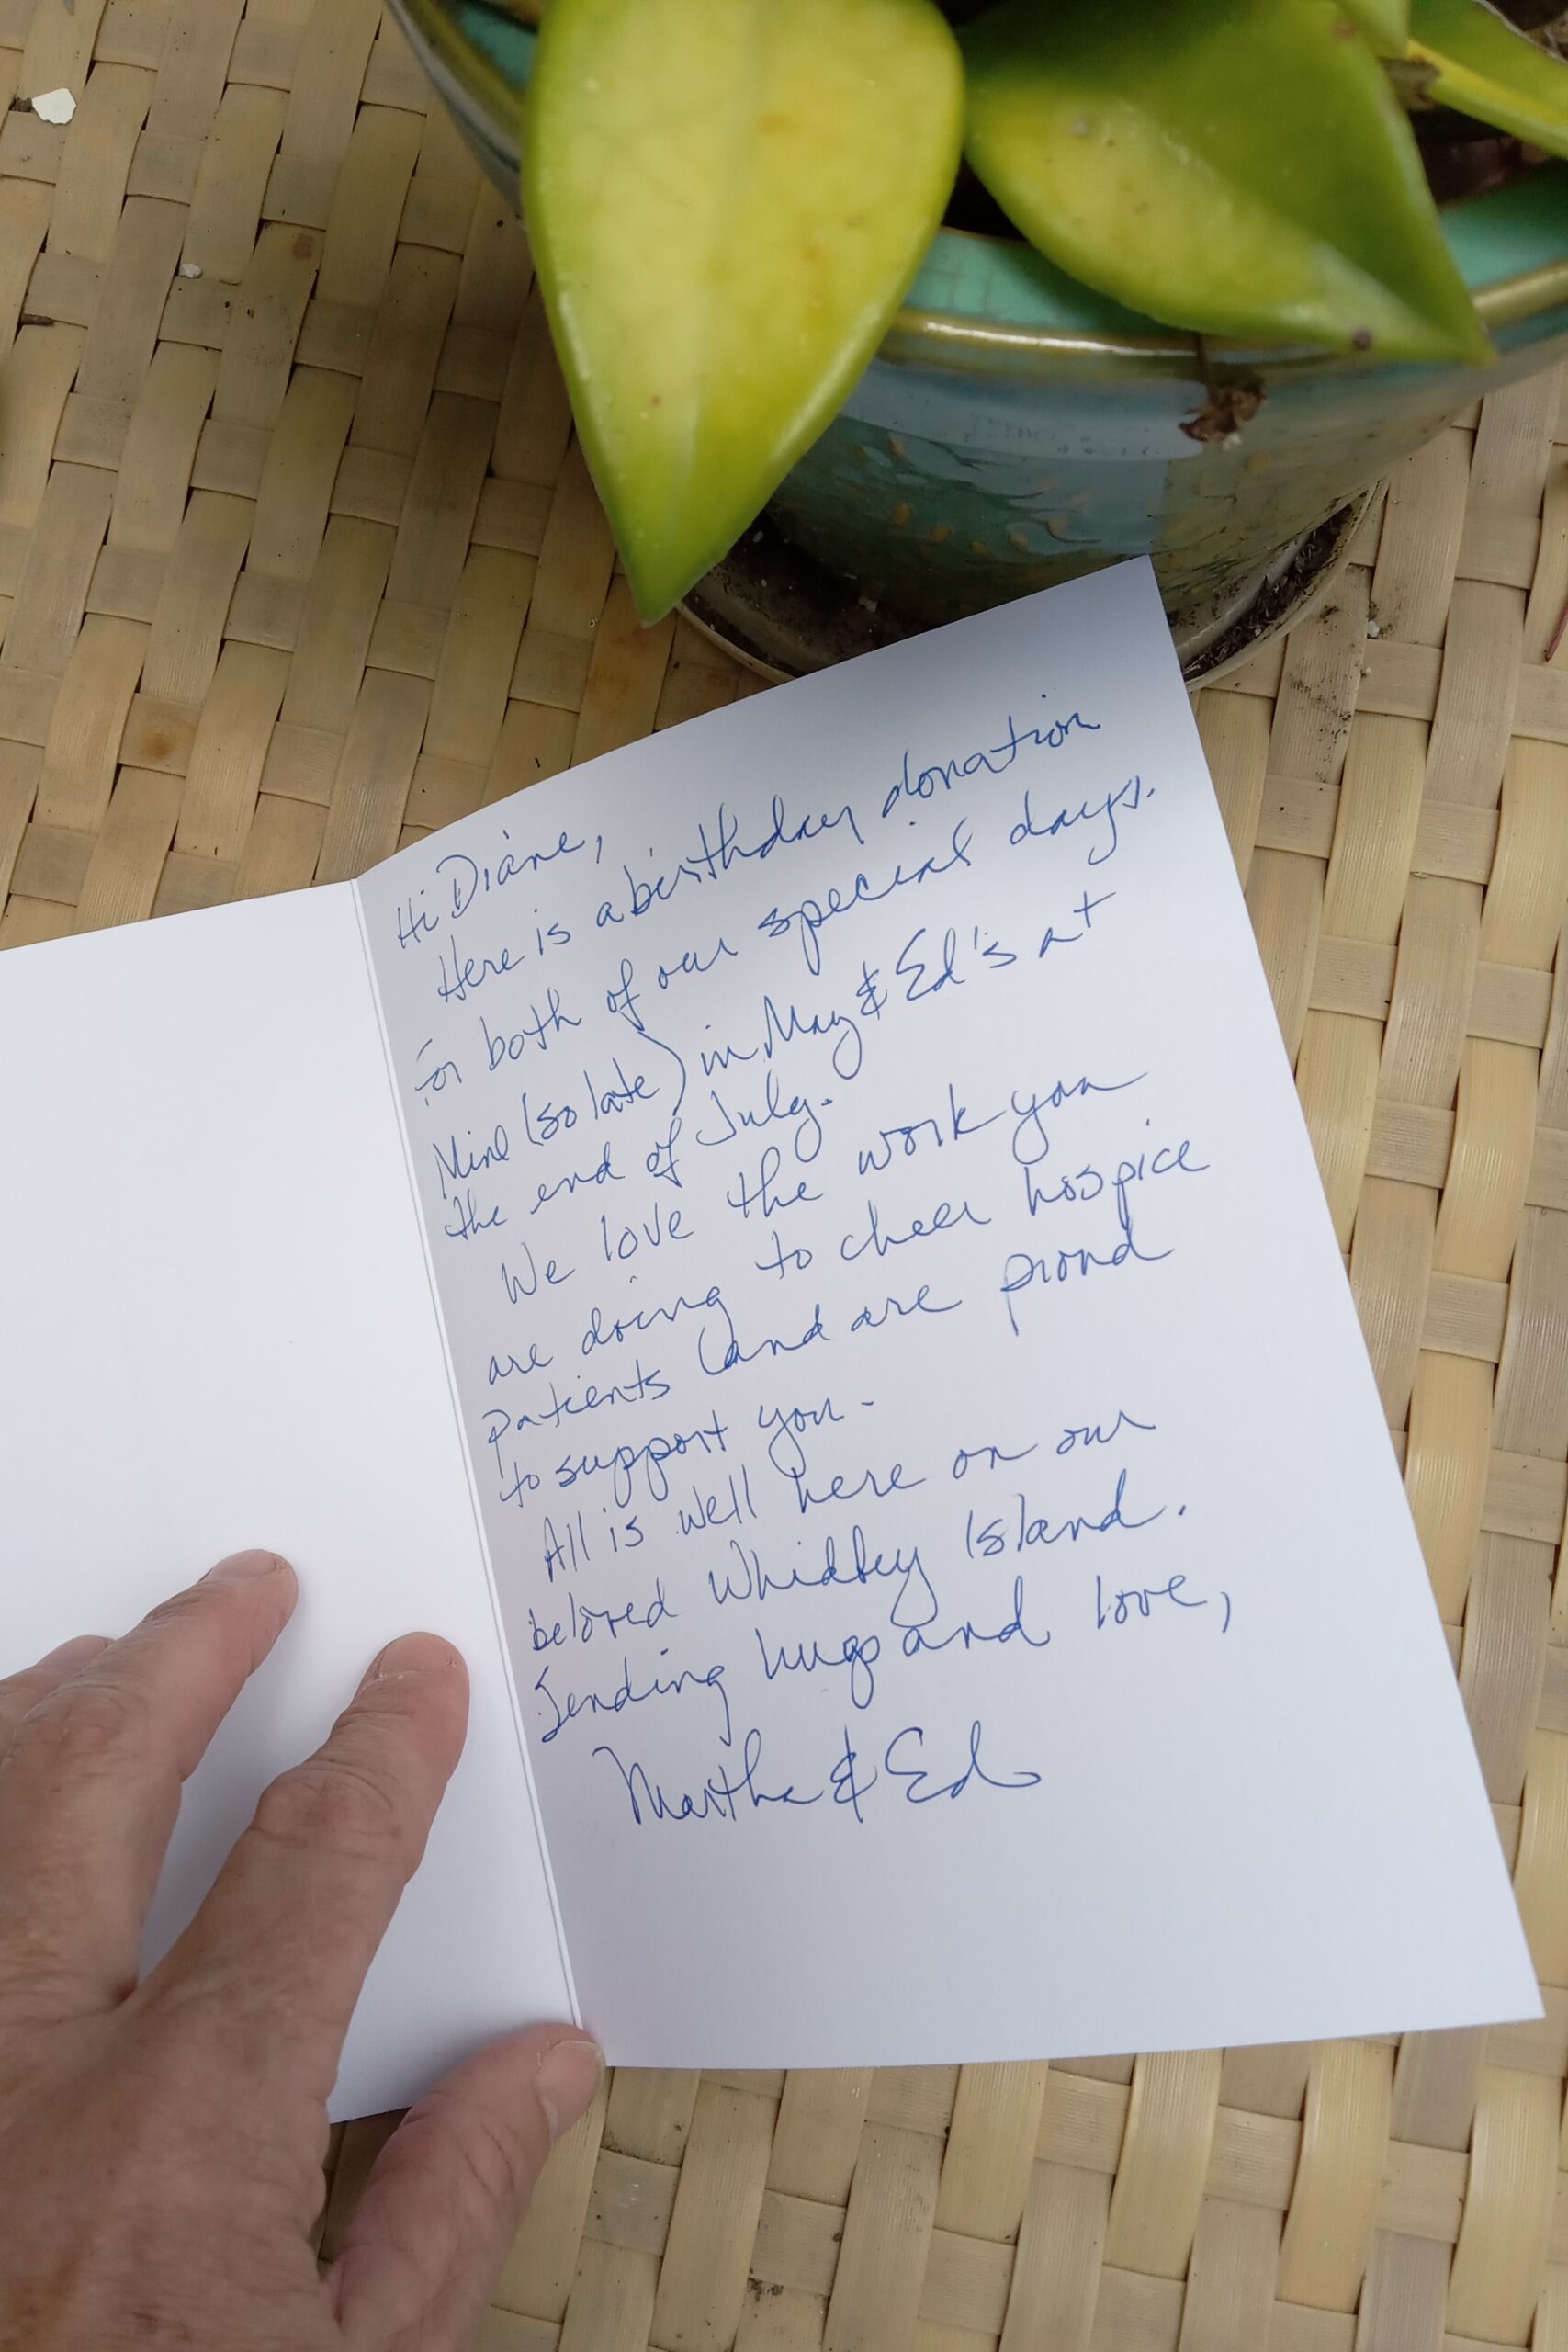 Hi Diane,
Here is a birthday donation
for both of our special days.
Mine (so late) in May & Ed's at
the end of July.
We love the work you
are doing to cheer hospice
patients (and are proud
to support you.
All is well here on our
beloved Whidbey Island.
Sending hugs and love,
Martha & Ed